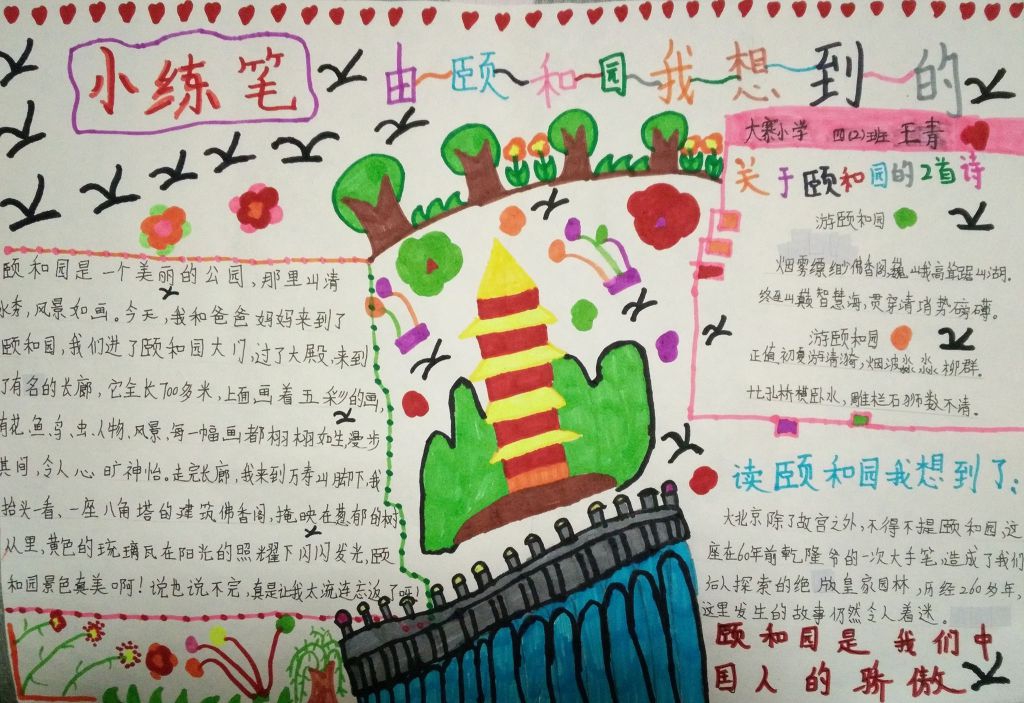 小练笔
由颐和园我想到的
大寨小学 四(2)班 王青
颐和园是一个美丽的公园,那里山清
水秀,风景如画。今天,我和爸爸妈妈来到了
颐和园,我们进了颐和园大门,过了大殿,来到
了有名的长廊,它全长700多米,上面画着五彩的画,
有花、鱼、鸟、虫、人物、风景,每一幅画都栩栩如生,漫步
其间,令人心旷神怡。走完长廊,我来到万寿山脚下,我
抬头一看、一座八角塔的建筑佛香阁,掩映在葱郁的树
从里,黄色的琉璃瓦在阳光的照耀下闪闪发光,颐
和园景色真美啊!说也说不完,真是让我太流连忘返了呀!
关于颐和园的2首诗
游颐和园
烟雾缥缈佛香阁,巍峨高耸踞山湖。
终年山巅智慧海,贯穿清
势磅礴。
游颐和园
正值初夏游清漪,烟波淼淼柳群。
廿孔桥横卧水,雕栏石狮数不清。
读颐和园我想到了:
大北京除了故宫之外,不得不提颐和园,这
座在60年前乾隆爷的一次大手笔,造成了我们
后人探索的绝版皇家园林,历经260多年,
这里发生的故事仍然令人着迷。
颐和园是我们中
国人的骄傲